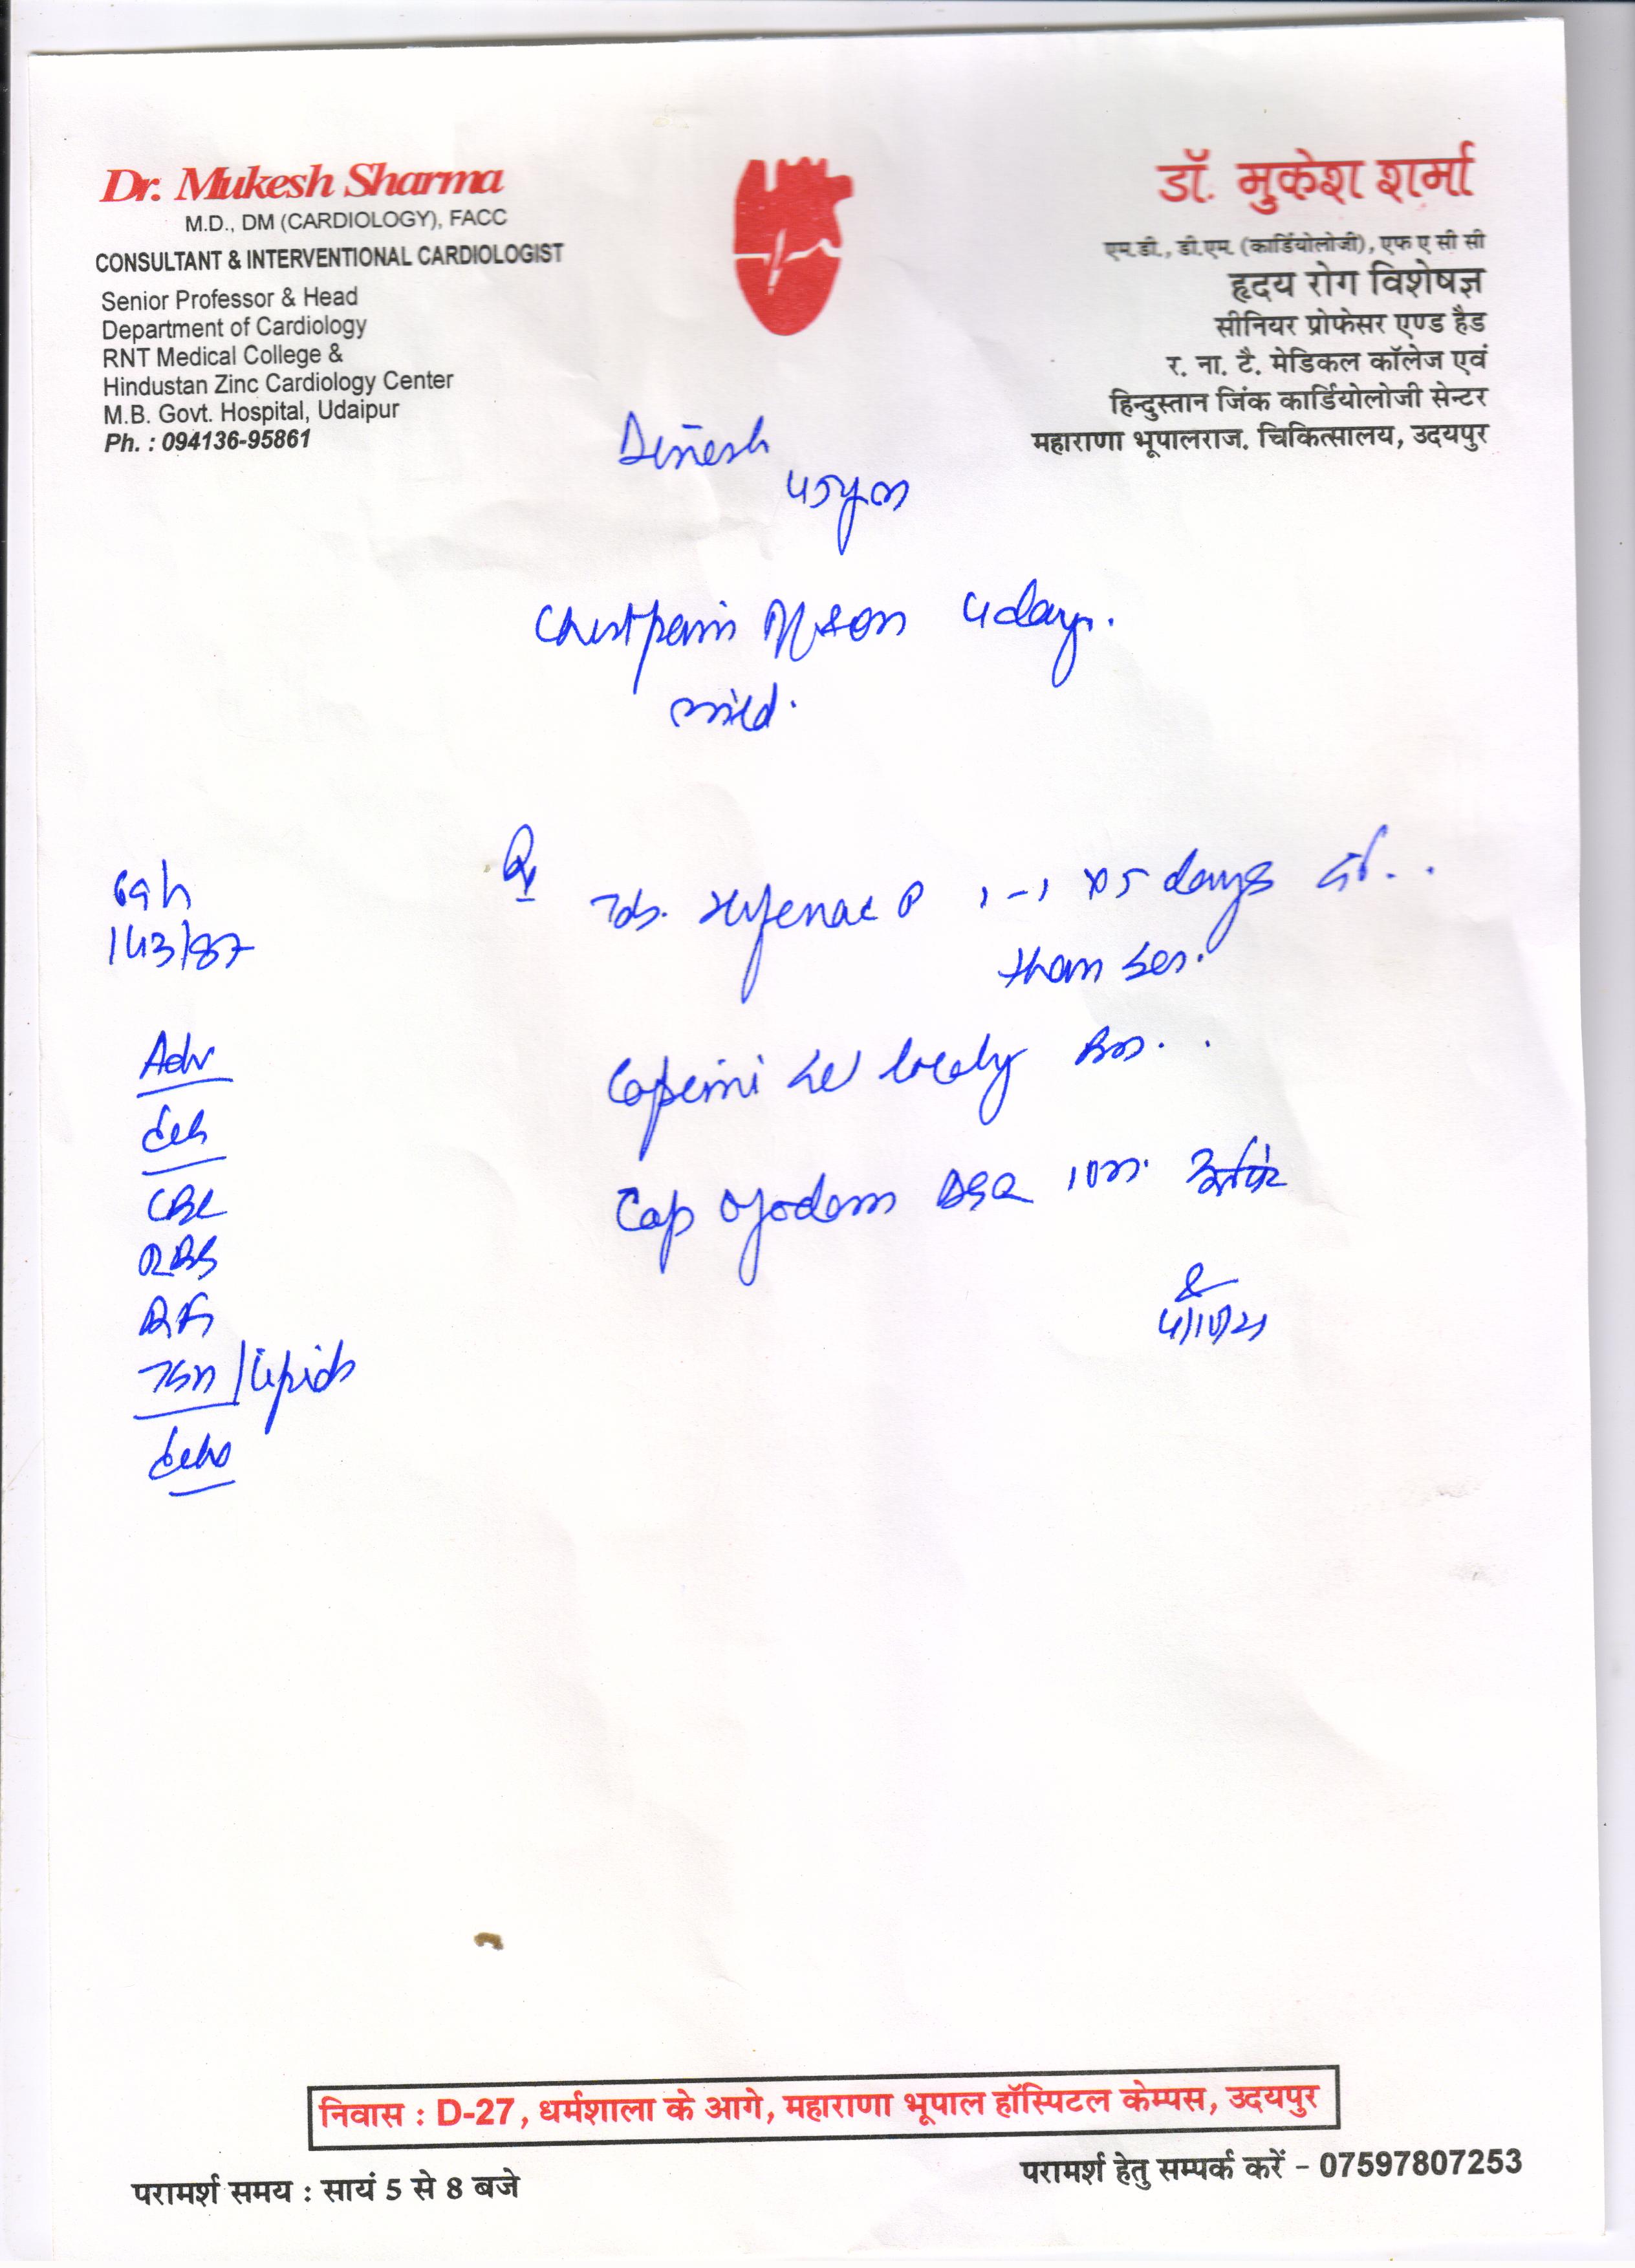 Dr. Mukesh Sharma
M.D., DM (CARDIOLOGY), FACC
CONSULTANT & INTERVENTIONAL CARDIOLOGIST
Senior Professor & Head
Department of Cardiology
RNT Medical College &
Hindustan Zinc Cardiology Center
M.B. Govt. Hospital, Udaipur
Ph. : 094136-95861
डॉ. मुकेश शर्मा
एम.डी., डी.एम. (कार्डियोलोजी), एफ ए सी सी
हृदय रोग विशेषज्ञ
सीनियर प्रोफेसर एण्ड हैड
र. ना. टै. मेडिकल कॉलेज एवं
हिन्दुस्तान जिंक कार्डियोलोजी सेन्टर
महाराणा भूपालराज. चिकित्सालय, उदयपुर
Dinesh
Chest pain 4 days.
mild.
143/87
Adv
CBC
RBS
/lipids
Echo
Rx
P 1-1 x 5 days
locally
Cap DSR
निवास : D-27, धर्मशाला के आगे, महाराणा भूपाल हॉस्पिटल केम्पस, उदयपुर
परामर्श समय : सायं 5 से 8 बजे
परामर्श हेतु सम्पर्क करें - 07597807253